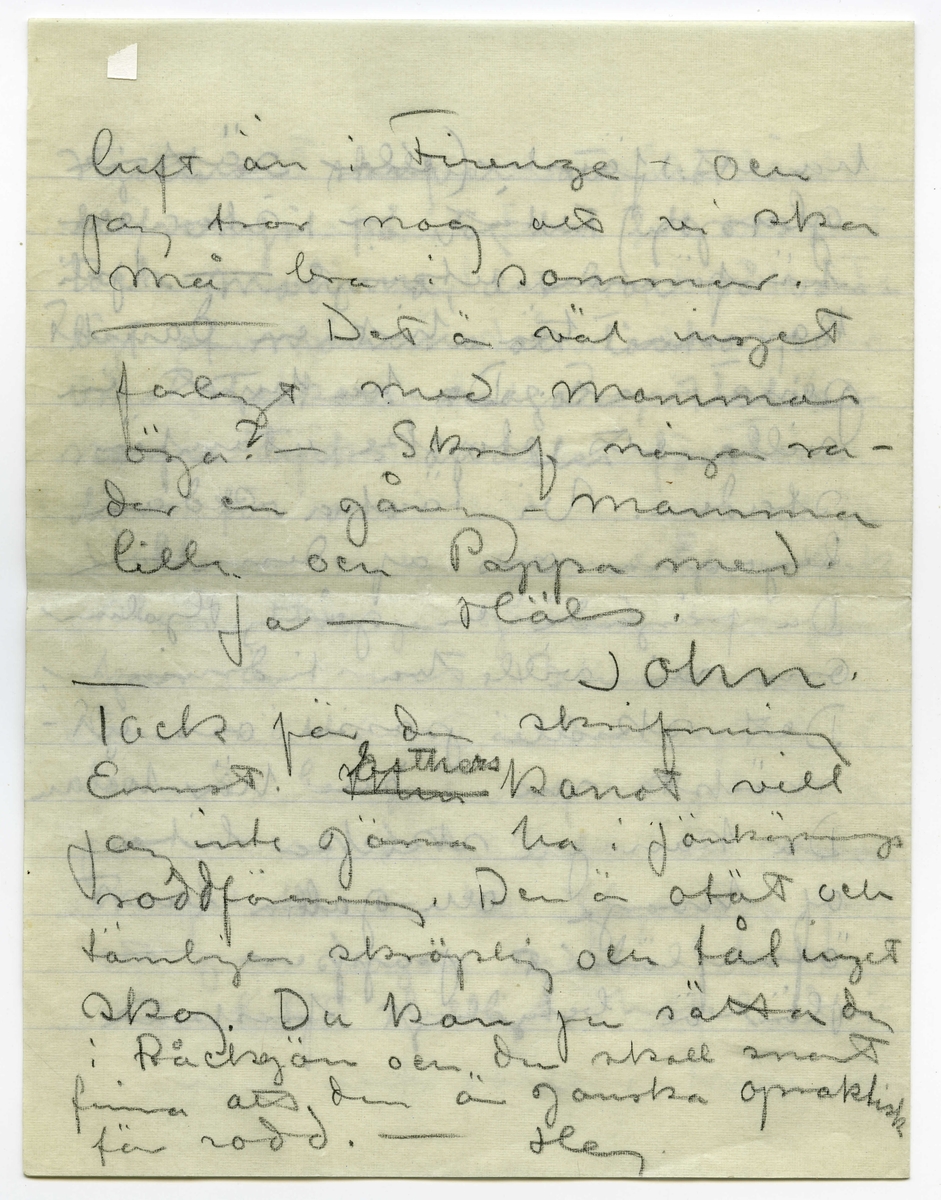 luft än i Firenze – och
jag tror nog att vi ska
må bra i sommar.
— Det ä väl inget
farligt med mammas
öga? – Skrif några ra-
der en gång – mamma
lilla och Pappa med.
Ja — Häls.
John.
Tack för din skrifning
Ernst. Esthers kanot vill
jag inte gärna ha i Jönköpings
roddförening. Den ä otät och
tämligen skröplig och tål inget
skoj. Du kan ju sätta den
i Råcksjön och du skall snart
finna att den är ganska opraktisk
för rodd. — Hej